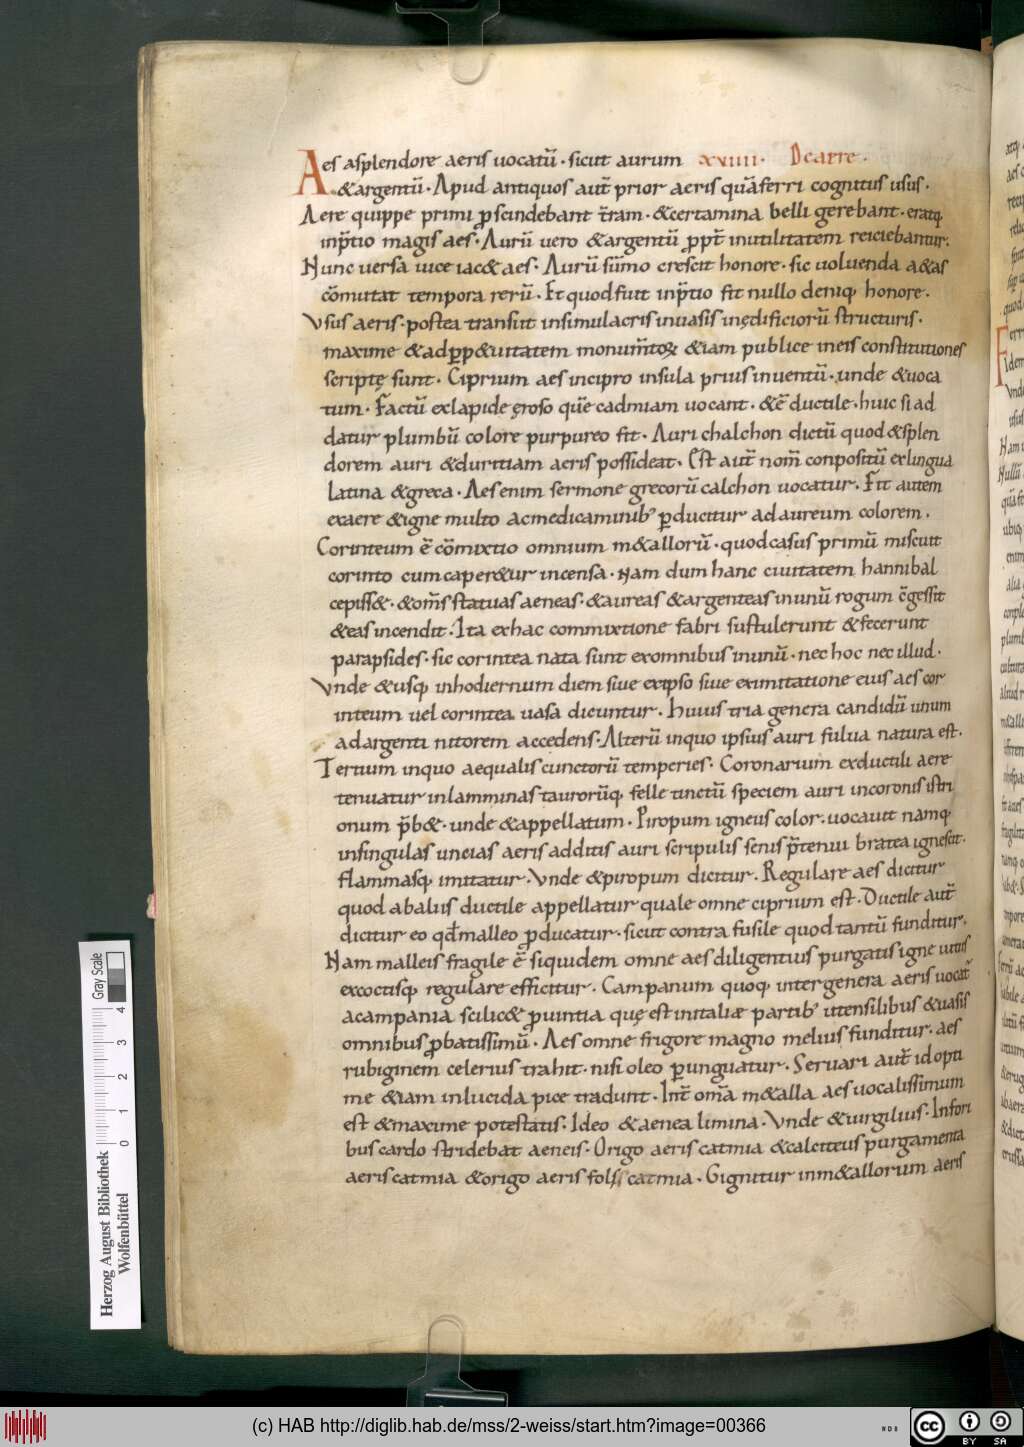 Aes asplendore aeris uocatū · sicut aurum xviiii · Dcaere .
&argentū · Apud antiquos aut̄ prior aeris quāferri cognitus usus .
Aere quippe primi ꝑscindebant t̄ram · &certamina belli gerebant · eratq;
inp̄tio magis aes · Aurū uero &argentū ꝓpt̄ inutilitatem reiciebantur .
Nunc uersa uice iac& aes · Aurū sūmo crescit honore · sic uoluenda a&as
cōmutat tempora rerū · Et quod fuit inp̄tio fit nullo deniq; honore .
Vsus aeris · postea transiit insimulacris inuasis inędificiorū structuris .
maxime &adꝑp&uitatem monum̄toꝝ &iam publice ineis constitutiones
scriptę sunt · Ciprium aes incipro insula prius inuentū · unde &uoca
tum · Factū exlapide ęroso quē cadmiam uocant · &ē ductile · huic si ad
datur plumbū colore purpureo fit · Auri chalchon dictū quod &splen
dorem auri &duritiam aeris possideat · Est aut̄ nom̄ conpositū exlingua
latina &greca · Aes enim sermone grecorū calchon uocatur · Fit autem
exaere &igne multo ac medicaminib; ꝑducitur ad aureum colorem .
Corinteum ē cōmixtio omnium m&allorū · quod casus primū miscuit
corinto cum caper&ur incensa · Nam dum hanc ciuitatem hannibal
cepiss& · &om̄s statuas aeneas · &aureas &argenteas inunū rogum c̄gessit
&eas incendit · Ita exhac commixtione fabri sustulerunt &fecerunt
parapsides · sic corintea nata sunt exomnibus inunū · nec hoc nec illud .
Vnde &usq; inhodiernum diem siue exipso siue eximitatione eius aes cor
inteum uel corintea uasa dicuntur · huius tria genera candidū unum
adargenti nitorem accedens · Alterū inquo ipsius auri fulua natura est .
Tertium inquo aequalis cunctorū temperies · Coronarium exductili aere
tenuatur inlamminas taurorūq; felle tinctū speciem auri incoronis istri
onum p̄b& · unde &appellatum · Piropum igneus color · uocauit namq;
insingulas uncias aeris additis auri scripulis senis p̄tenui bratea ignescit .
flammasq; imitatur · Vnde &piropum dicitur · Regulare aes dicitur
quod abaliis ductile appellatur quale omne ciprium est · Ductile aut̄
dicitur eo qđ malleo ꝓducatur · sicut contra fusile quod tantū funditur .
Nam malleis fragile ē siquidem omne aes diligentius purgatis igne uitiis
excoctisq; regulare efficitur · Campanum quoq; inter genera aeris uocat̄
acampania scilic& ꝓuintia quę est initaliæ partib; utensilibus &uasis
omnibus ꝓbatissimū · Aes omne frigore magno melius funditur · aes
rubiginem celerius trahit · nisi oleo ꝑunguatur · Seruari aut̄ id opti
me &iam inlucida pice tradunt · Int̄ om̄a m&alla aes uocalissimum
est &maxime potestatis · Ideo &aenea limina · Vnde &uirgilius · Infori
bus cardo stridebat aeneis · Origo aeris catmia &calciteus purgamenta
aeris catmia &origo aeris catmia · Gignitur inm&allorum aeris
Herzog August Bibliothek
Wolfenbüttel
0 1 2 3 4
Gray Scale
(c) HAB http://diglib.hab.de/mss/2-weiss/start.htm?image=00366
cc BY SA